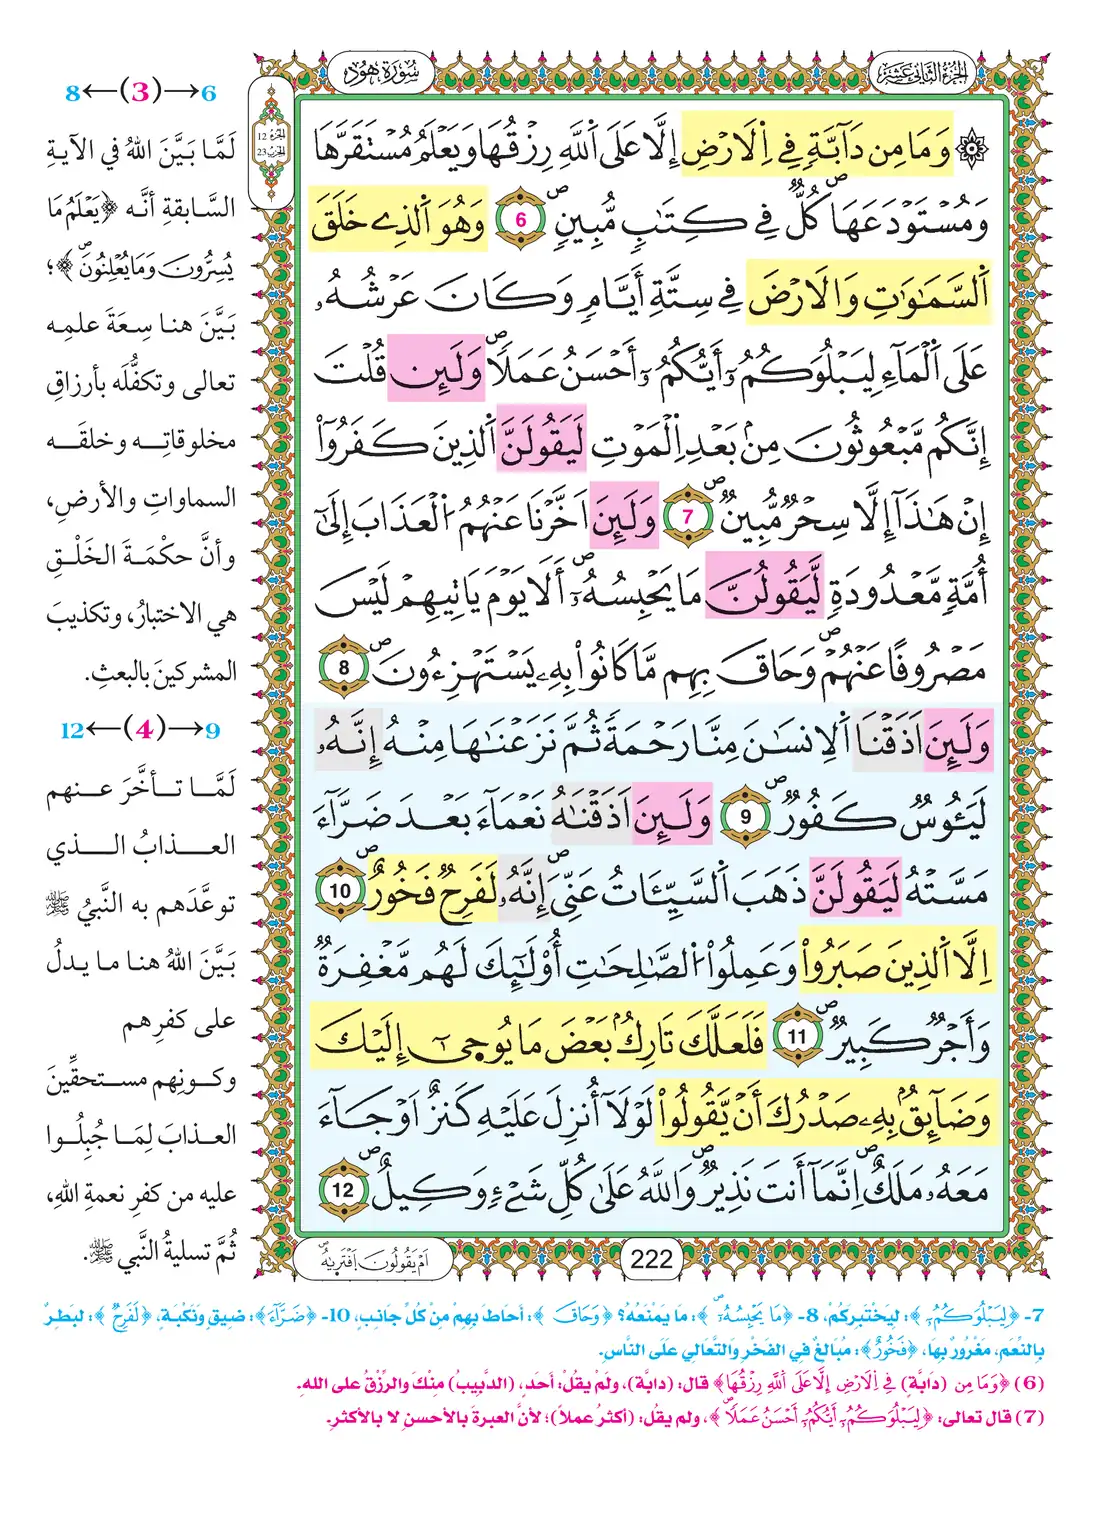 الجزء الثاني عشر
سُورَةُ هُودٍ
الجزء 12
الحزب 23
وَمَا مِن دَآبَّةٖ فِے اِ۬لَارْضِ إِلَّا عَلَى اَ۬للَّهِ رِزْقُهَا وَيَعْلَمُ مُسْتَقَرَّهَا
وَمُسْتَوْدَعَهَاۖ كُلّٞ فِے كِتَٰبٖ مُّبِينٖۖ 6 وَهُوَ اَ۬لذِے خَلَقَ
اَ۬لسَّمَٰوَٰتِ وَالَارْضَ فِے سِتَّةِ أَيَّامٖ وَكَانَ عَرْشُهُۥ
عَلَى اَ۬لْمَآءِ لِيَبْلُوَكُمُۥٓ أَيُّكُمُۥٓ أَحْسَنُ عَمَلاٗۖ وَلَئِن قُلْتَ
إِنَّكُم مَّبْعُوثُونَ مِنۢ بَعْدِ اِ۬لْمَوْتِ لَيَقُولَنَّ اَ۬لذِينَ كَفَرُوٓاْ
إِنْ هَٰذَآ إِلَّا سِحْرٞ مُّبِينٞۖ 7 وَلَئِنَ اَخَّرْنَا عَنْهُمُ اُ۬لْعَذَابَ إِلَىٰٓ
أُمَّةٖ مَّعْدُودَةٖ لَّيَقُولُنَّ مَا يَحْبِسُهُۥٓۖ أَلَا يَوْمَ يَاتِيهِمْ لَيْسَ
مَصْرُوفاً عَنْهُمْۖ وَحَاقَ بِهِم مَّا كَانُواْ بِهِۦ يَسْتَهْزِءُونَۖ 8
وَلَئِنَ اَذَقْنَا اَ۬لِانسَٰنَ مِنَّا رَحْمَةٗ ثُمَّ نَزَعْنَٰهَا مِنْهُ إِنَّهُۥ
لَيَـُٔوسٞ كَفُورٞۖ 9 وَلَئِنَ اَذَقْنَٰهُ نَعْمَآءَ بَعْدَ ضَرَّآءَ
مَسَّتْهُ لَيَقُولَنَّ ذَهَبَ اَ۬لسَّيِّـَٔاتُ عَنِّيٓۖ إِنَّهُۥ لَفَرِحٞ فَخُورٌۖ 10
اِلَّا اَ۬لذِينَ صَبَرُواْ وَعَمِلُواْ اُ۬لصَّٰلِحَٰتِ أُوْلَٰٓئِكَ لَهُم مَّغْفِرَةٞ
وَأَجْرٞ كَبِيرٞۖ 11 فَلَعَلَّكَ تَارِكُۢ بَعْضَ مَا يُوح۪يٰٓ إِلَيْكَ
وَضَآئِقُۢ بِهِۦ صَدْرُكَ أَنْ يَّقُولُواْ لَوْلَآ أُنزِلَ عَلَيْهِ كَنزٌ اَوْ جَآءَ
مَعَهُۥ مَلَكٌۖ اِنَّمَآ أَنتَ نَذِيرٞۖ وَاللَّهُ عَلَىٰ كُلِّ شَےْءٖ وَكِيلٌۖ 12
222
أَمْ يَقُولُونَ اَ۪فْتَر۪يٰهُۖ
6→(3)←8
لَمَّا بَيَّنَ اللهُ في الآيةِ
السَّابقةِ أنَّه ﴿يَعْلَمُ مَا
يُسِرُّونَ وَمَا يُعْلِنُونَۖ﴾؛
بَيَّنَ هنا سِعَةَ علمِه
تعالى وتكفُّلَه بأرزاقِ
مخلوقاتِه وخلقَه
السماواتِ والأرضِ،
وأنَّ حكْمَةَ الخَلْقِ
هي الاختبارُ، وتكذيبَ
المشركينَ بالبعثِ.
9→(4)←12
لَمَّا تأخَّرَ عنهم
العذابُ الذي
توعَّدَهم به النَّبيُ ﷺ
بَيَّنَ اللهُ هنا ما يدلُ
على كفرِهم
وكونِهم مستحقِّينَ
العذابَ لِمَا جُبِلُوا
عليه من كفرِ نعمةِ اللهِ،
ثُمَّ تسليةُ النَّبي ﷺ.
7- ﴿لِيَبْلُوَكُمُۥٓ﴾: ليَخْتَبِرَكُمْ، 8- ﴿مَا يَحْبِسُهُۥٓۖ﴾: مَا يَمْنَعُهُ؟ ﴿وَحَاقَ﴾: أَحَاطَ بِهِمْ مِنْ كُلِّ جَانِبٍ، 10- ﴿ضَرَّآءَ﴾: ضِيقٍ وَنَكْبَةٍ، ﴿لَفَرِحٞ﴾: لبَطِرٌ
بالنِّعَمِ، مَغْرُورٌ بِهَا، ﴿فَخُورٌ﴾: مُبَالِغٌ في الفَخْرِ وَالتَّعَالِي عَلَى النَّاسِ.
(6) ﴿وَمَا مِن (دَآبَّةٖ) فِے اِ۬لَارْضِ إِلَّا عَلَى اَ۬للَّهِ رِزْقُهَا﴾ قال: (دابَّة)، ولمْ يقُلْ: أحَدٍ، (الدَّبِيبُ) مِنْكَ والرِّزْقُ على اللهِ.
(7) قال تعالى: ﴿لِيَبْلُوَكُمُۥٓ أَيُّكُمُۥٓ أَحْسَنُ عَمَلاٗۖ﴾، ولم يقُل: (أكثرُ عملاً)؛ لأنَّ العبرةَ بالأحسنِ لا بالأكثرِ.